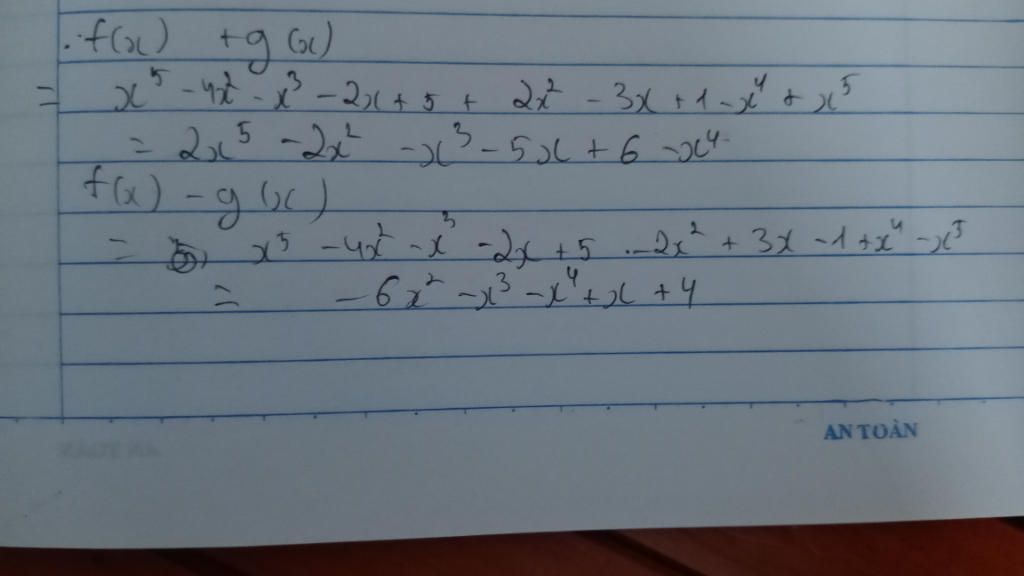 . f(x) + g(x)
= x⁵ - 4x² - x³ - 2x + 5 + 2x² - 3x + 1 - x⁴ + x⁵
= 2x⁵ - 2x² - x³ - 5x + 6 - x⁴
f(x) - g(x)
= x⁵ - 4x² - x³ - 2x + 5 - 2x² + 3x - 1 + x⁴ - x⁵
= - 6x² - x³ - x⁴ + x + 4
AN TOÀN